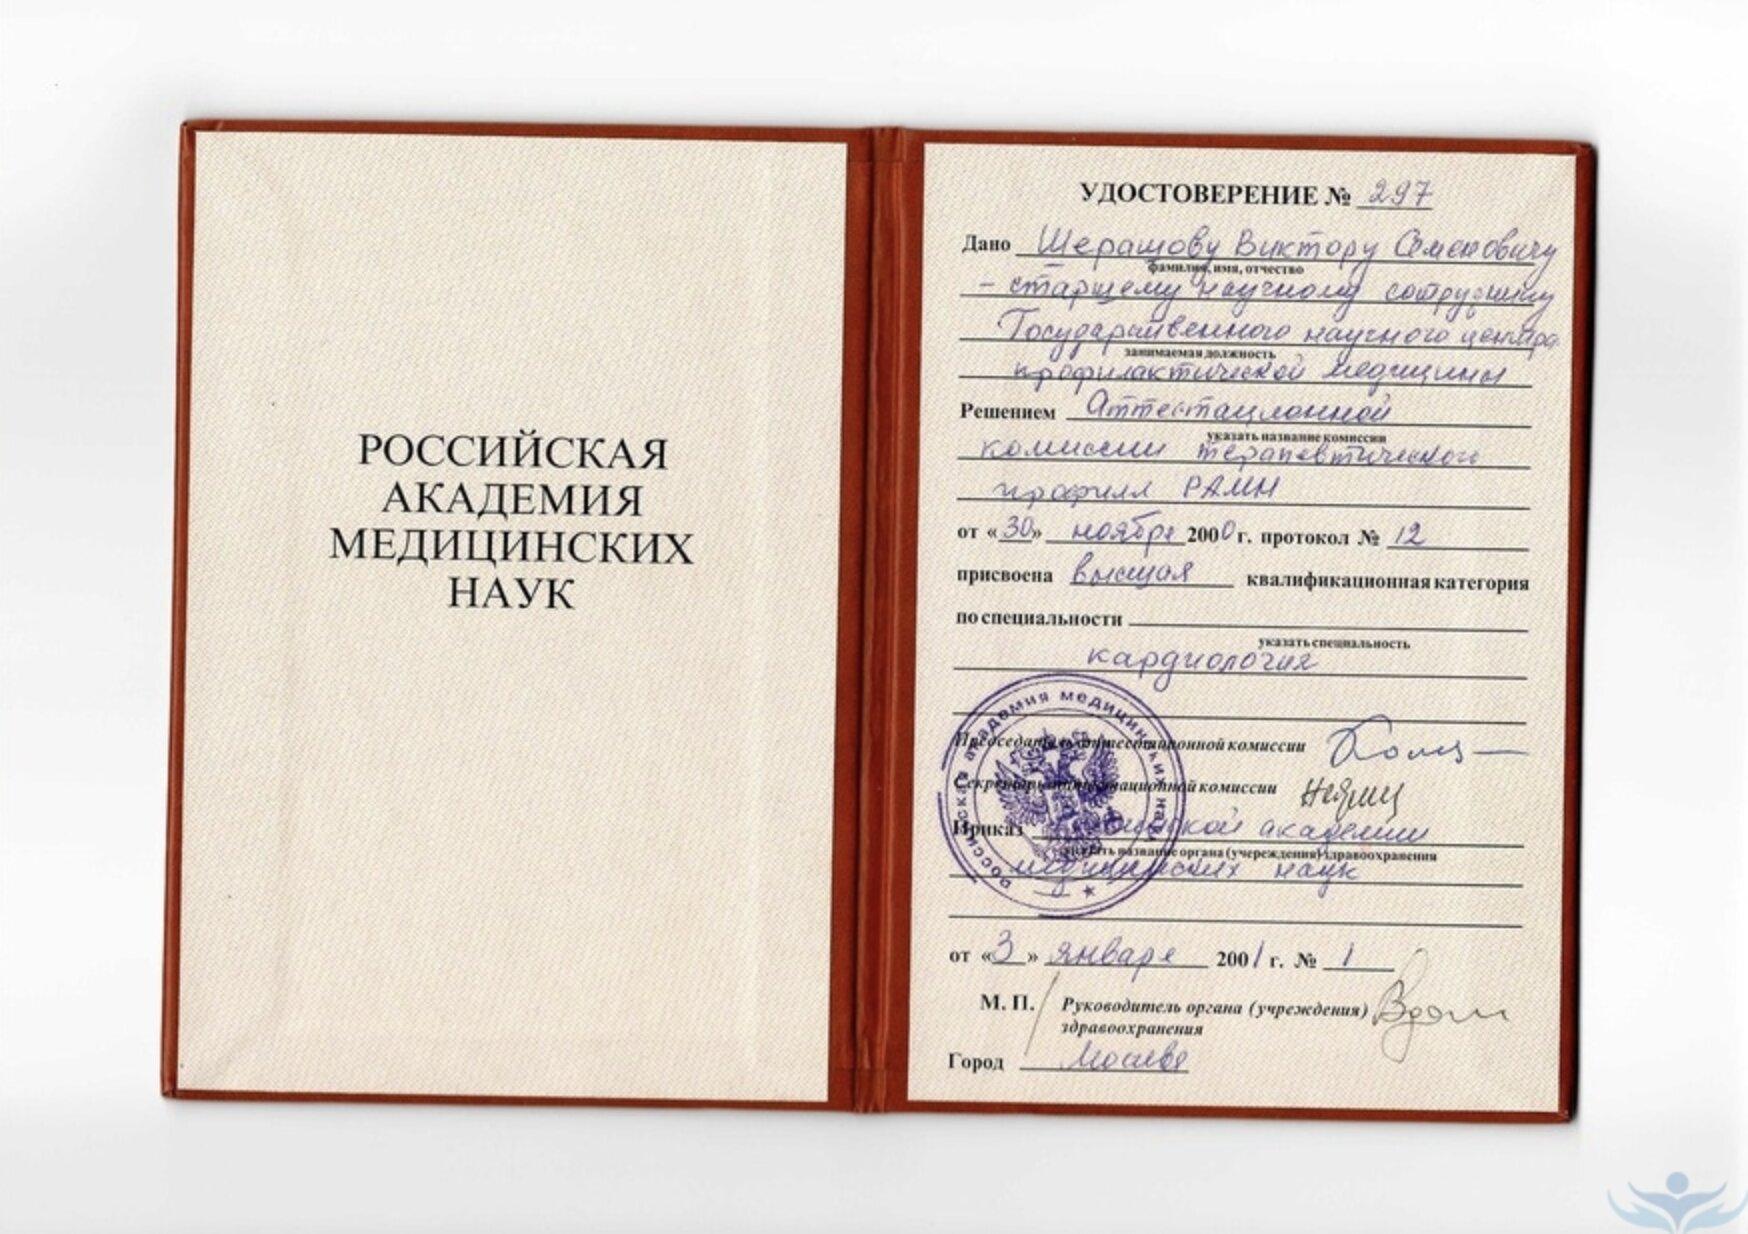 РОССИЙСКАЯ
АКАДЕМИЯ
МЕДИЦИНСКИХ
НАУК
УДОСТОВЕРЕНИЕ № 297
Дано Шеращову Виктору Семеновичу
фамилия, имя, отчество
- старшему научному сотруднику
Государственного научного центра
занимаемая должность
профилактической медицины
Решением Аттестационной
указать название комиссии
комиссии терапевтического
профиля РАМН
от «30» ноября 2000 г. протокол № 12
присвоена высшая квалификационная категория
по специальности
указать специальность
кардиология
Председатель аттестационной комиссии
Секретарь аттестационной комиссии
Приказ академии
указать название органа (учереждения) здравоохранения
медицинских наук
российская академия медицинских наук
от «3» января 2001 г. № 1
М. П. Руководитель органа (учреждения)
здравоохранения
Город Москва